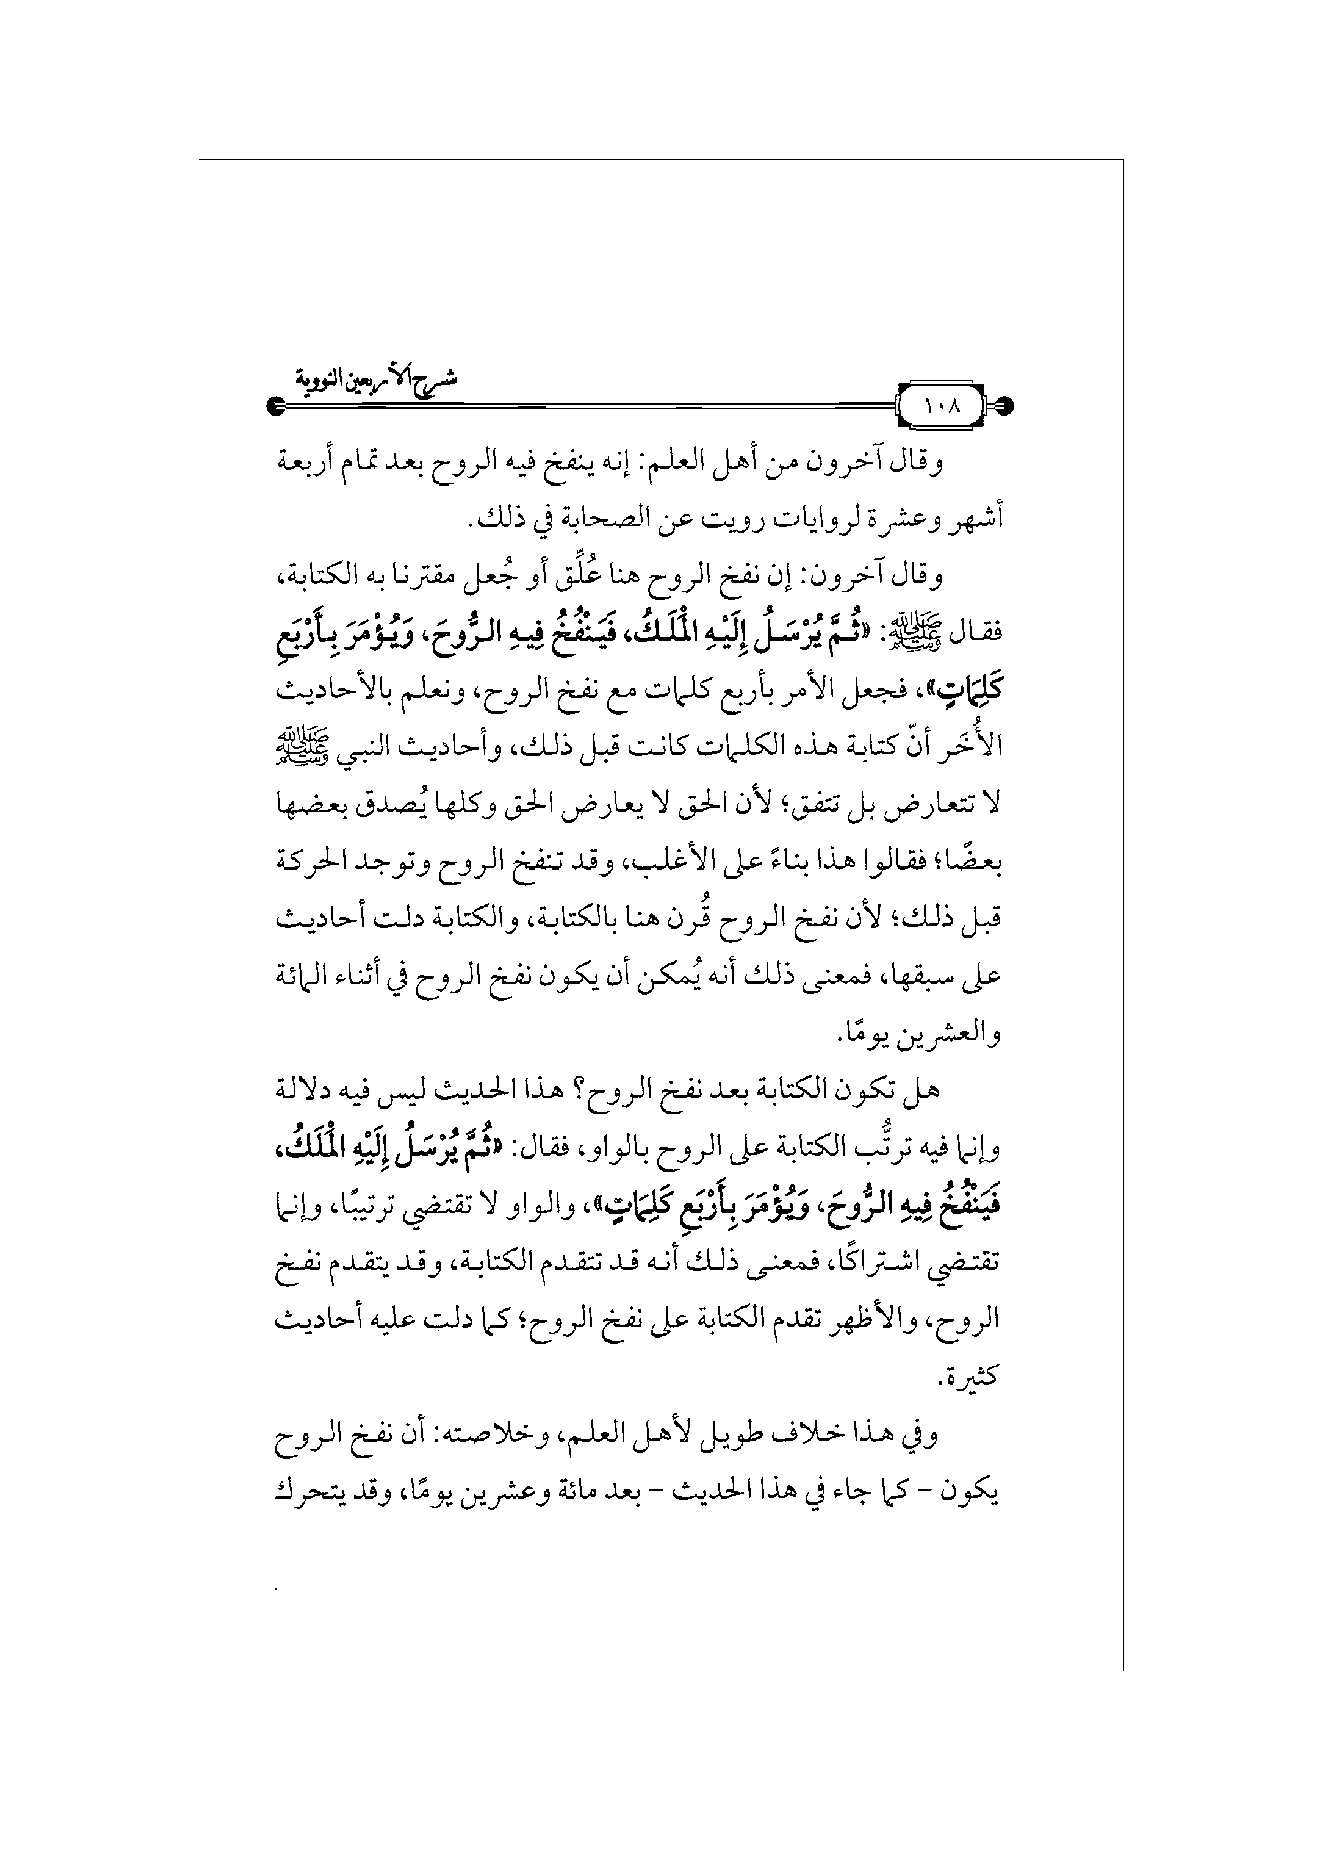 شرح الأربعين النووية
١٠٨
وقال آخرون من أهل العلم: إنه ينفخ فيه الروح بعد تمام أربعة
أشهر وعشرة لروايات رويت عن الصحابة في ذلك.
وقال آخرون: إن نفخ الروح هنا عُلِّق أو جُعل مقترنا به الكتابة،
فقال ﷺ: «ثُمَّ يُرْسَلُ إِلَيْهِ الْمَلَكُ، فَيَنْفُخُ فِيهِ الرُّوحَ، وَيُؤْمَرَ بِأَرْبَعِ
كَلِمَاتٍ»، فجعل الأمر بأربع كلمات مع نفخ الروح، ونعلم بالأحاديث
الأُخَر أنّ كتابة هذه الكلمات كانت قبل ذلك، وأحاديث النبي ﷺ
لا تتعارض بل تتفق؛ لأن الحق لا يعارض الحق وكلها يُصدق بعضها
بعضًا؛ فقالوا هذا بناءً على الأغلب، وقد تنفخ الروح وتوجد الحركة
قبل ذلك؛ لأن نفخ الروح قُرن هنا بالكتابة، والكتابة دلت أحاديث
على سبقها، فمعنى ذلك أنه يُمكن أن يكون نفخ الروح في أثناء المائة
والعشرين يومًا.
هل تكون الكتابة بعد نفخ الروح؟ هذا الحديث ليس فيه دلالة
وإنما فيه ترتُّب الكتابة على الروح بالواو، فقال: «ثُمَّ يُرْسَلُ إِلَيْهِ الْمَلَكُ،
فَيَنْفُخُ فِيهِ الرُّوحَ، وَيُؤْمَرَ بِأَرْبَعِ كَلِمَاتٍ»، والواو لا تقتضي ترتيبًا، وإنما
تقتضي اشتراكًا، فمعنى ذلك أنه قد تتقدم الكتابة، وقد يتقدم نفخ
الروح، والأظهر تقدم الكتابة على نفخ الروح؛ كما دلت عليه أحاديث
كثيرة.
وفي هذا خلاف طويل لأهل العلم، وخلاصته: أن نفخ الروح
يكون – كما جاء في هذا الحديث – بعد مائة وعشرين يومًا، وقد يتحرك